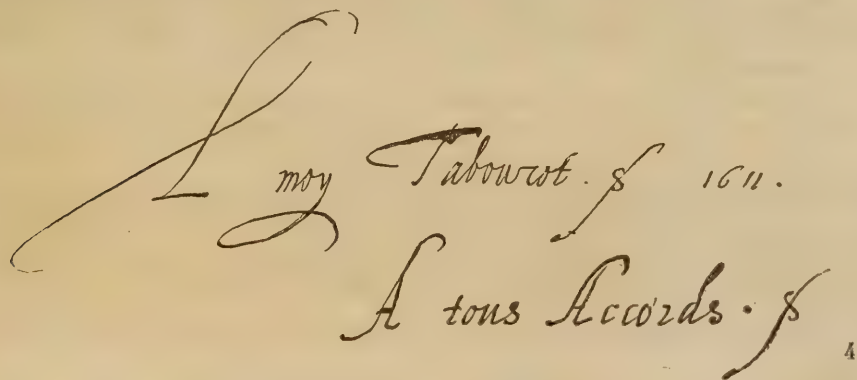 A moy Tabourot. § 1611.
A tous Accords. §
4